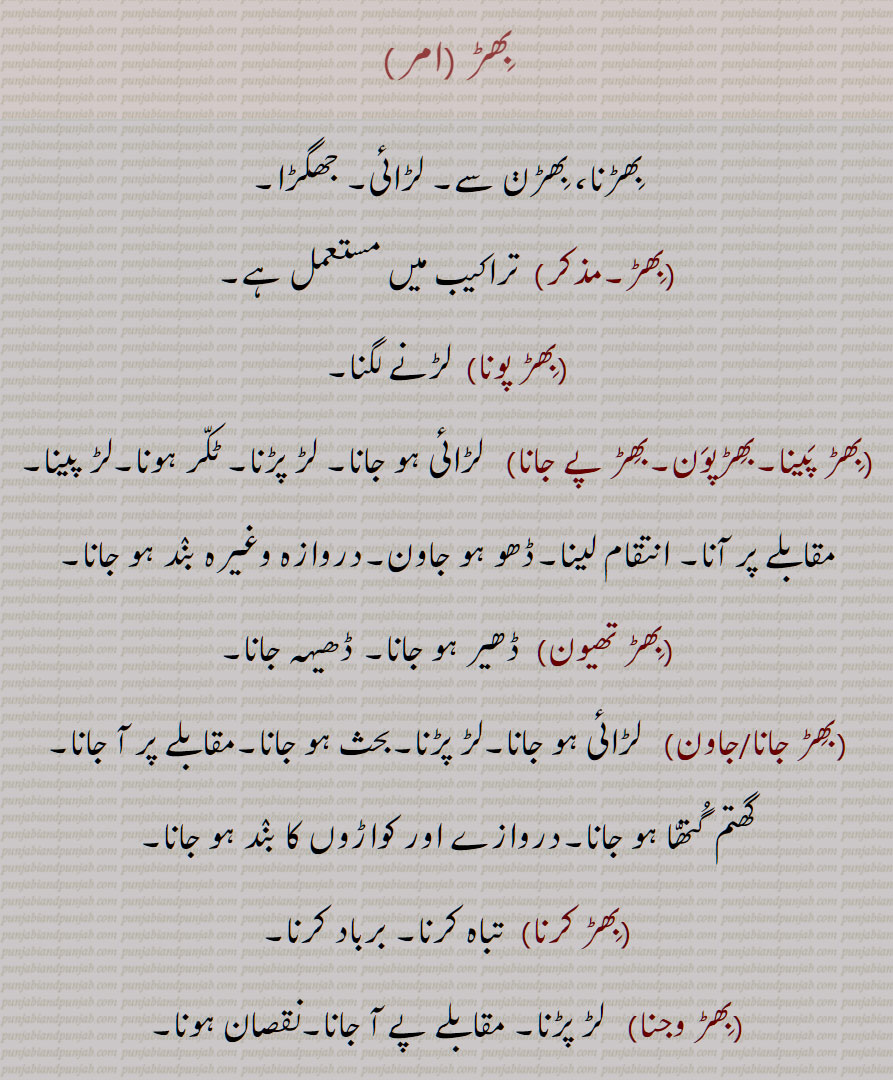 بِھڑ (امر)
بِھڑنا، بِھڑن سے۔ لڑائی۔ جھگڑا۔
(بِھڑ۔مذکر) تراکیب میں مستعمل ہے۔
(بِھڑ پونا) لڑنے لگنا۔
(بِھڑ پَینا۔بِھڑپوَن۔بِھڑ پے جانا) لڑائی ہو جانا۔ لڑ پڑنا۔ ٹکّر ہونا۔لڑ پینا۔
مقابلے پر آنا۔ انتقام لینا۔ڈھو ہو جاون۔دروازہ وغیرہ بند ہو جانا۔
(بِھڑ تھیون) ڈھیر ہو جانا۔ ڈھیہہ جانا۔
(بِھڑ جانا/جاون) لڑائی ہو جانا۔لڑ پڑنا۔بحث ہو جانا۔مقابلے پر آ جانا۔
گھتم گُتھّا ہو جانا۔دروازے اور کواڑوں کا بند ہو جانا۔
(بِھڑ کرنا) تباہ کرنا۔ برباد کرنا۔
(بِھڑ وجنا) لڑ پڑنا۔ مقابلے پے آ جانا۔نقصان ہونا۔